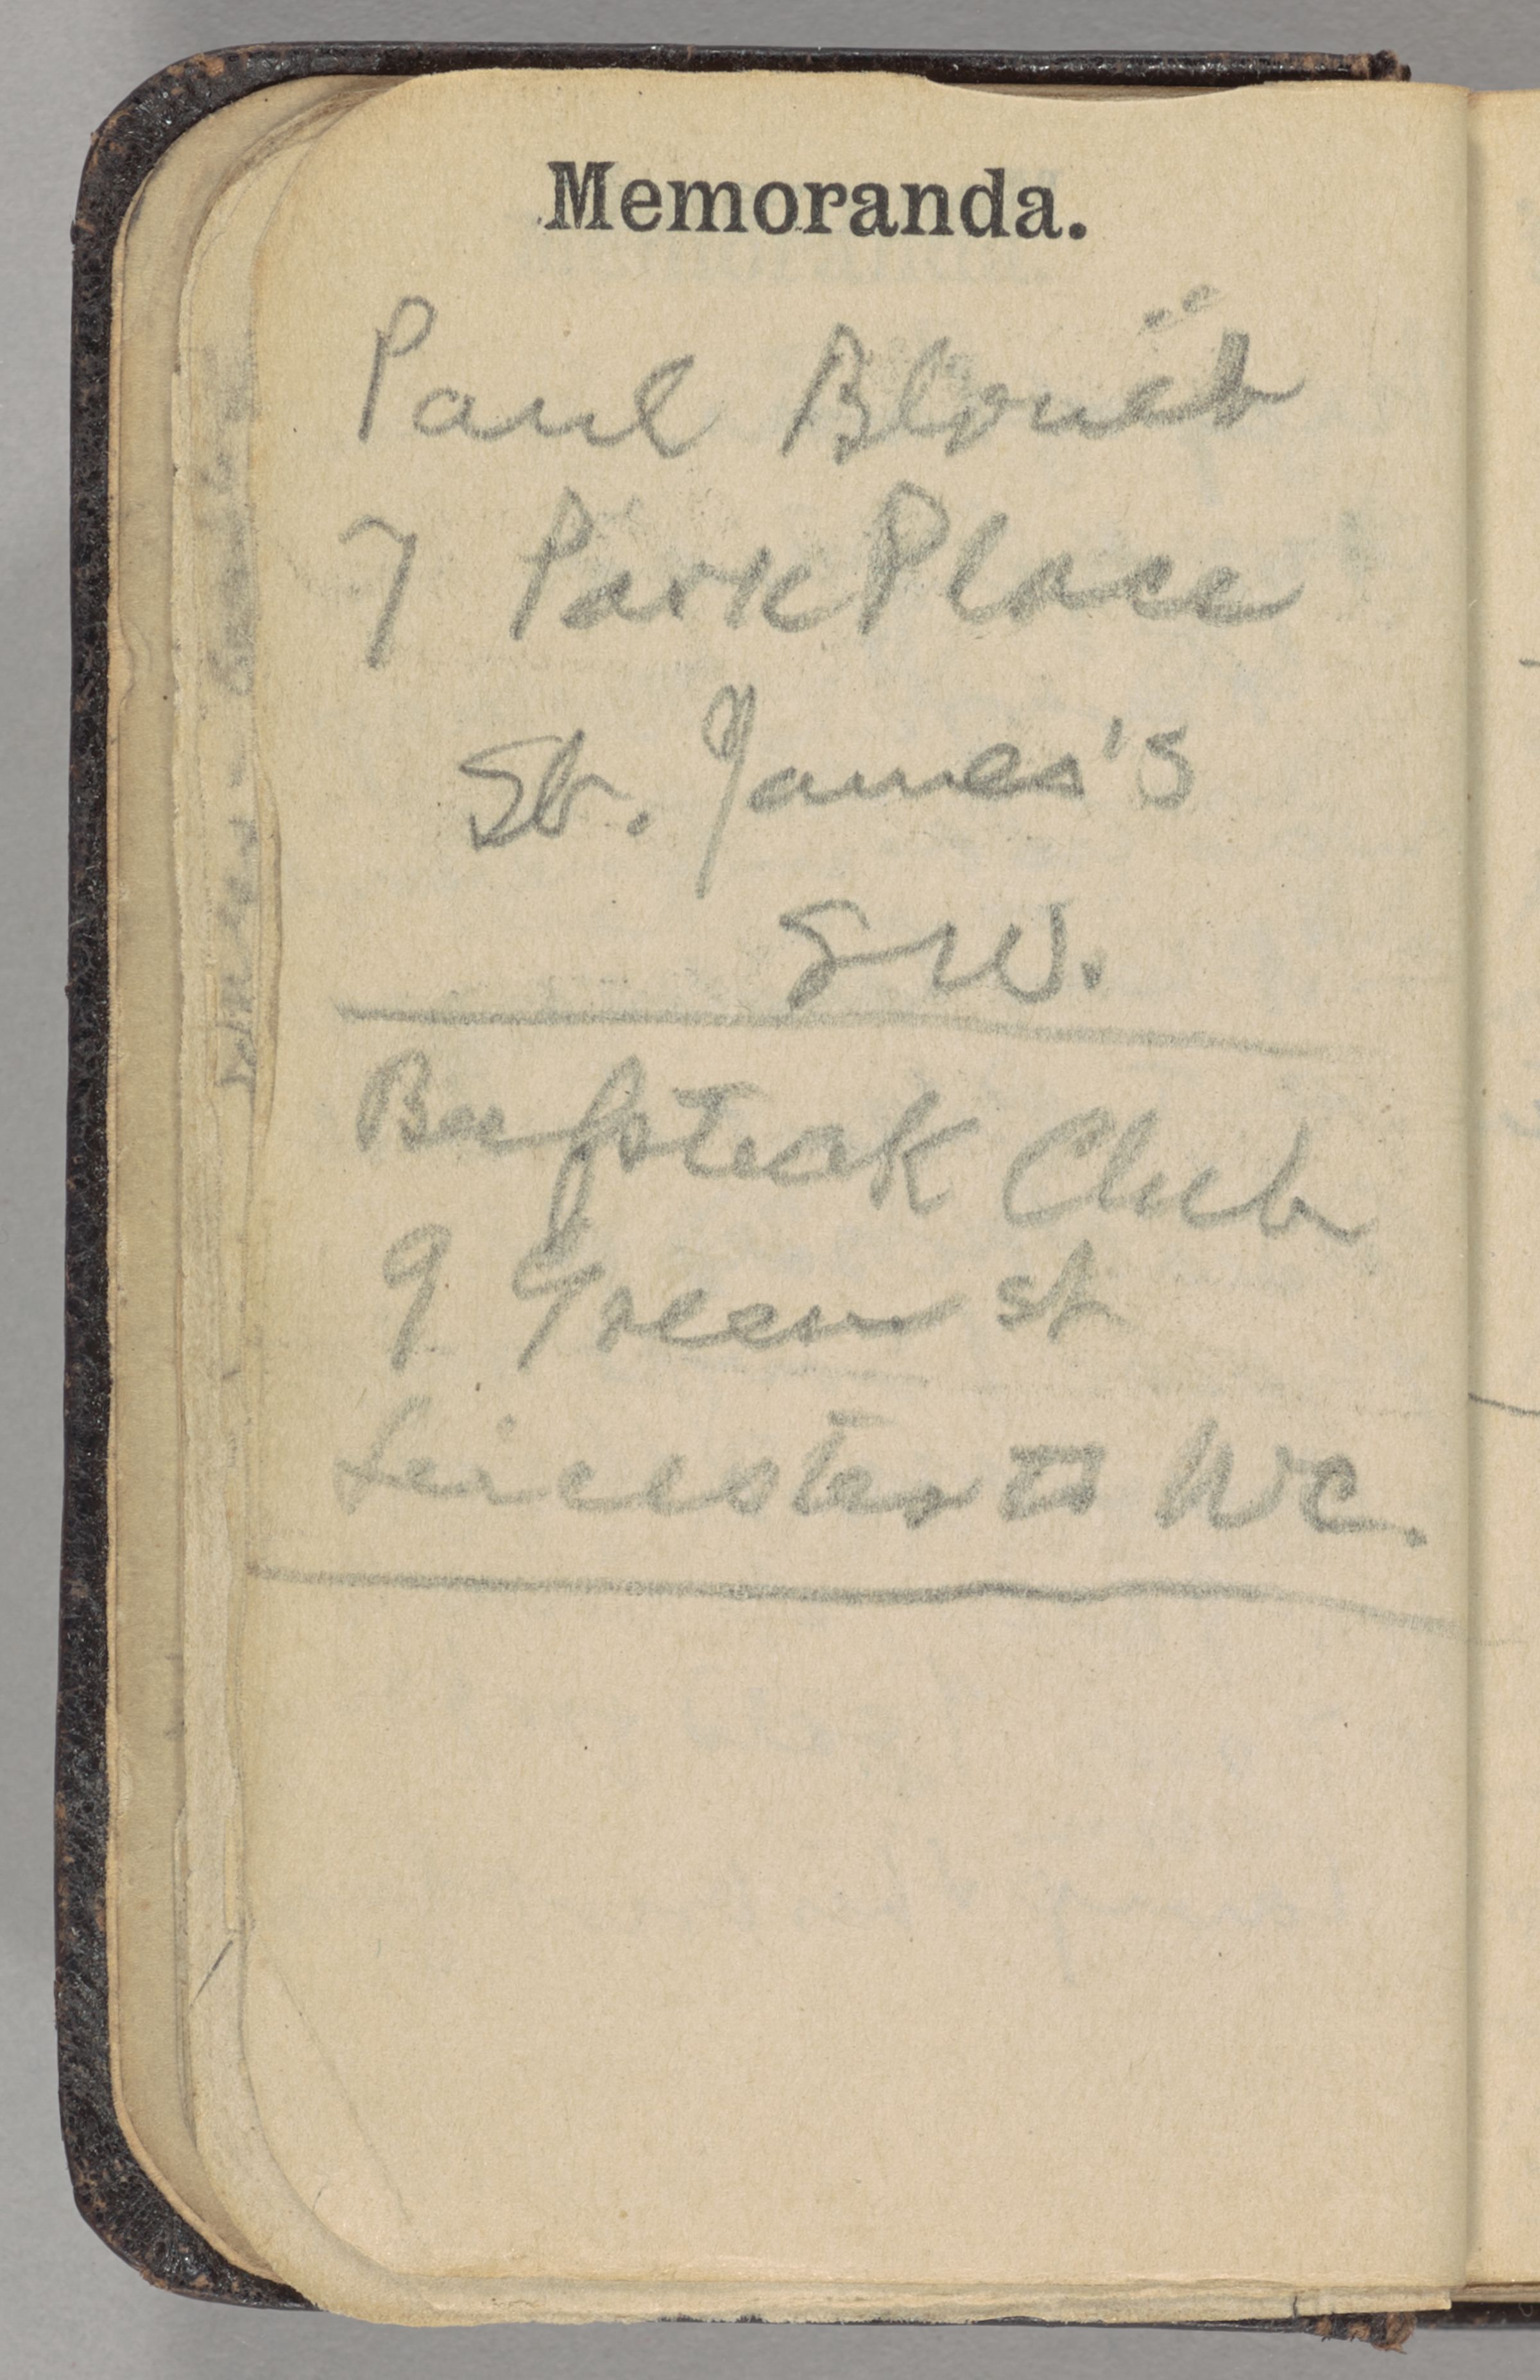 Memoranda.
Paul Blouët
7 Park Place
St. James's
SW.
Beefsteak Club
9 Green St
Leicester WC.